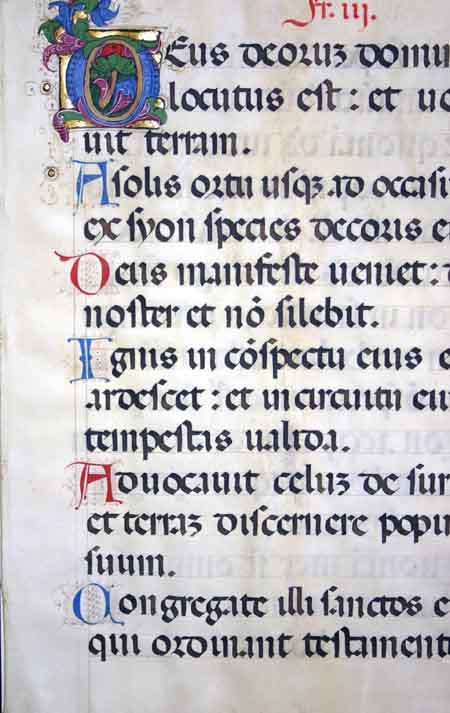 Fr. iii.
Deus deoruʒ domu
locutus est: et uo
uit terram.
A solis ortu usqʒ ad occasu
ex syon species decoris e
Deus manifeste ueniet: d
noster et nō silebit.
Ignis in cōspectu eius e
ardescet: et in circuitu eiu
tempestas ualida.
Aduocauit celuʒ de sur
et terraʒ discernere popu
suum.
Congregate illi sanctos e
qui ordinant testament